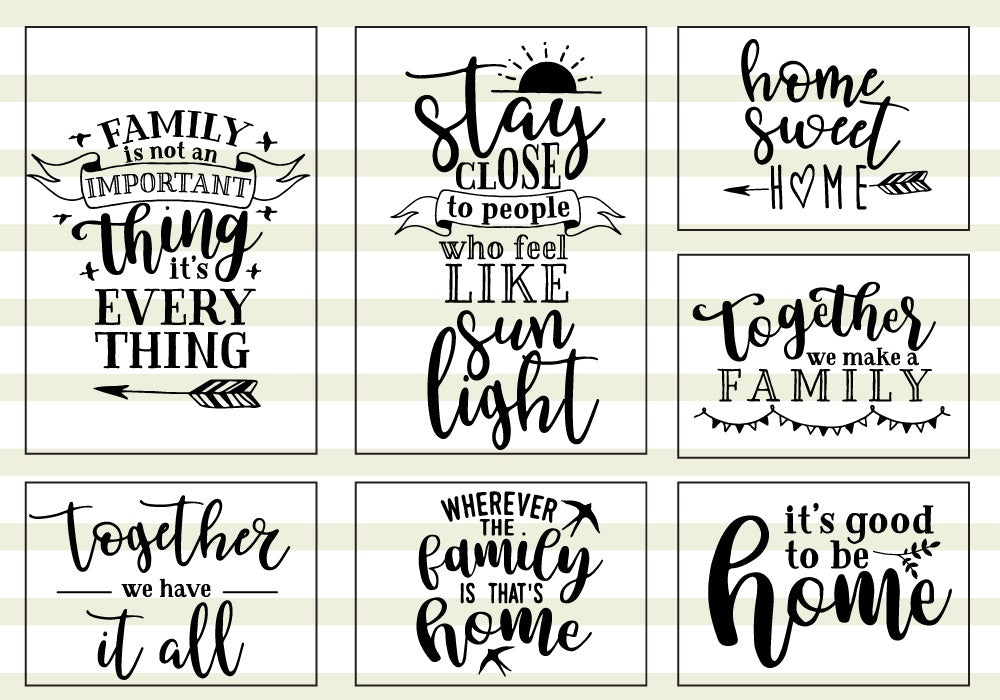 FAMILY
is not an
IMPORTANT
thing
it's
EVERY
THING
stay
CLOSE
to people
who feel
LIKE
sun
light
home
sweet
HOME
Together
we make a
FAMILY
together
we have
it all
WHEREVER
THE
family
IS THAT'S
home
it's good
to be
home